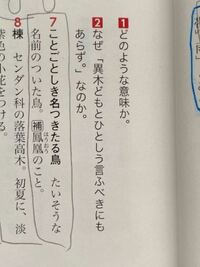 1 どのような意味か。
2 なぜ「異木どもとひとしう言ふべきにも
あらず。」なのか。
7 ことごとしき名つきたる鳥 たいそうな
名前のついた鳥。補鳳凰のこと。
ほうおう
8 棟 センダン科の落葉高木。初夏に、淡
紫色の小花をつける。